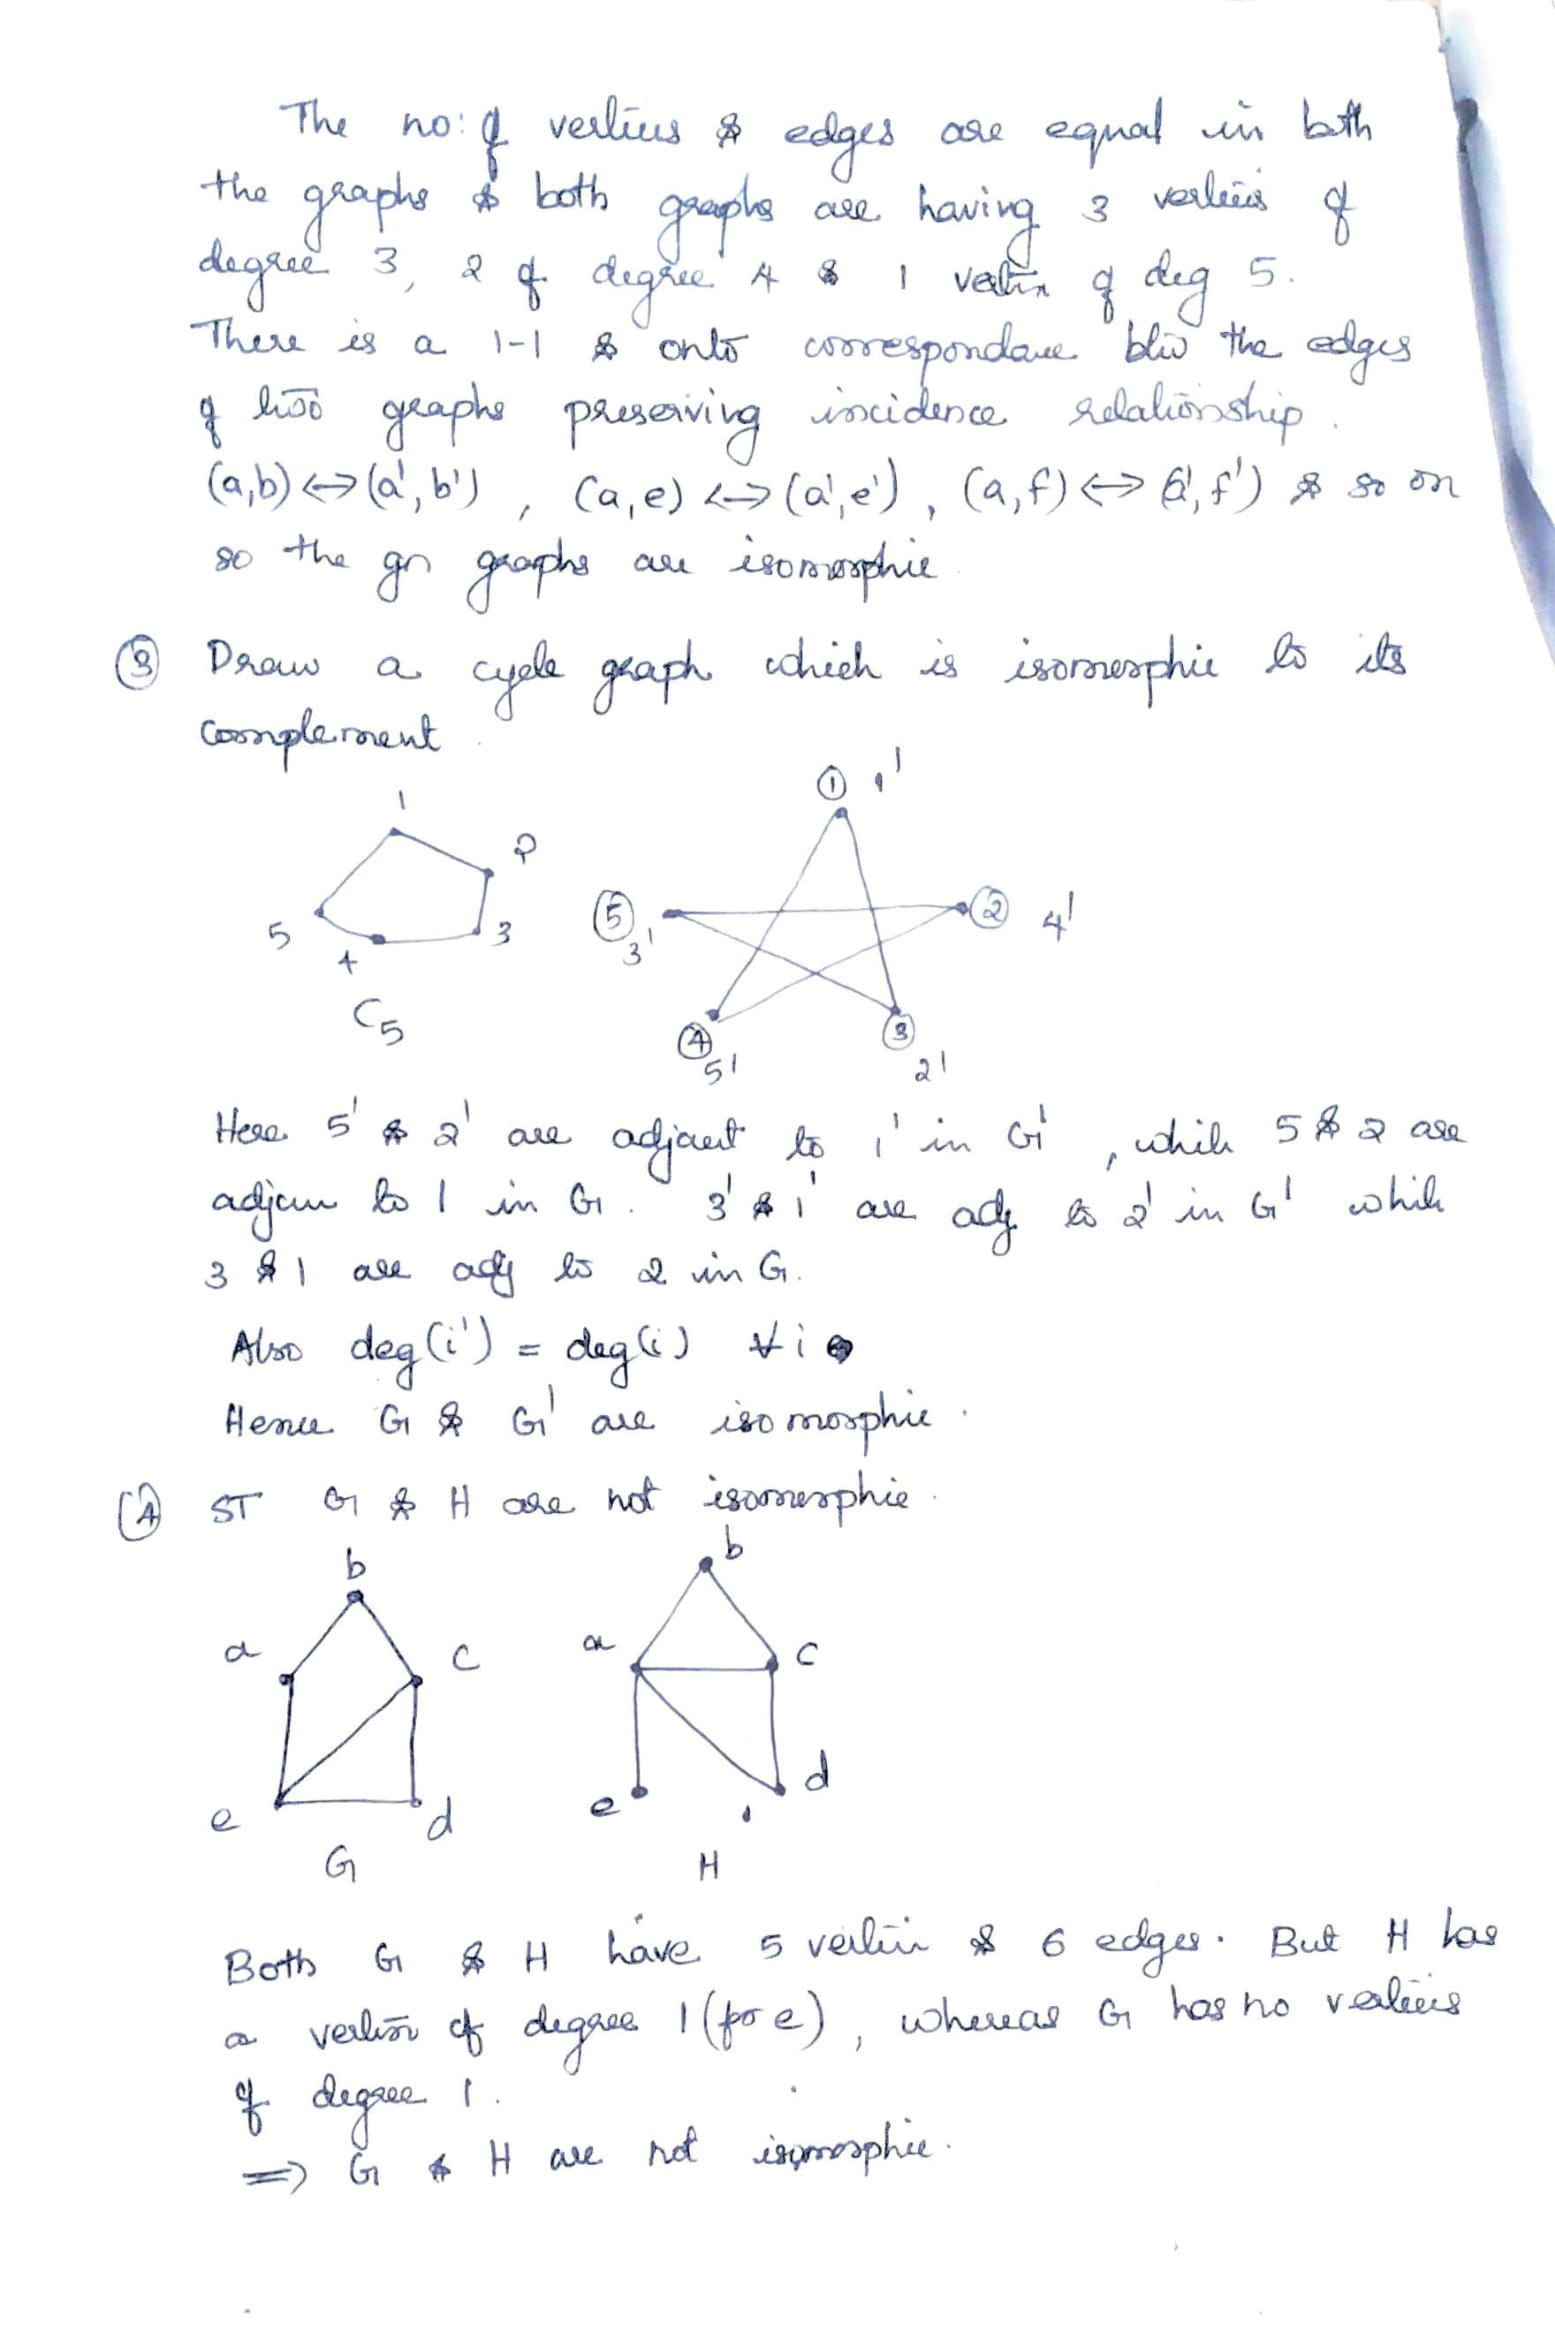 The no: of vertices & edges are equal in both
the graphs & both graphs are having 3 vertices of
degree 3, 2 of degree 4 & 1 vertex of deg 5.
There is a 1-1 & onto correspondance b/w the edges
of two graphs preserving incidence relationship.
(a,b) <-> (a', b') , (a,e) <-> (a',e') , (a,f) <-> (a', f') & so on
so the gn graphs are isomorphic
③ Draw a cycle graph which is isomorphic to its
complement.
1
2
5
3
4
C5
① 1'
⑤
② 4'
3'
④
③
5'
2'
Here 5' & 2' are adjacent to 1' in G' , while 5 & 2 are
adjacen to 1 in G. 3' & 1' are adj to 2' in G' while
3 & 1 are adj to 2 in G.
Also deg(i') = deg(i) ∀ i
Hence G & G' are isomorphic.
④ ST G & H are not isomorphic.
b
b
a
c
a
c
e
d
e
d
G
H
Both G & H have 5 vertices & 6 edges. But H has
a vertex of degree 1 (for e) , whereas G has no vertices
of degree 1.
=> G & H are not isomorphic.